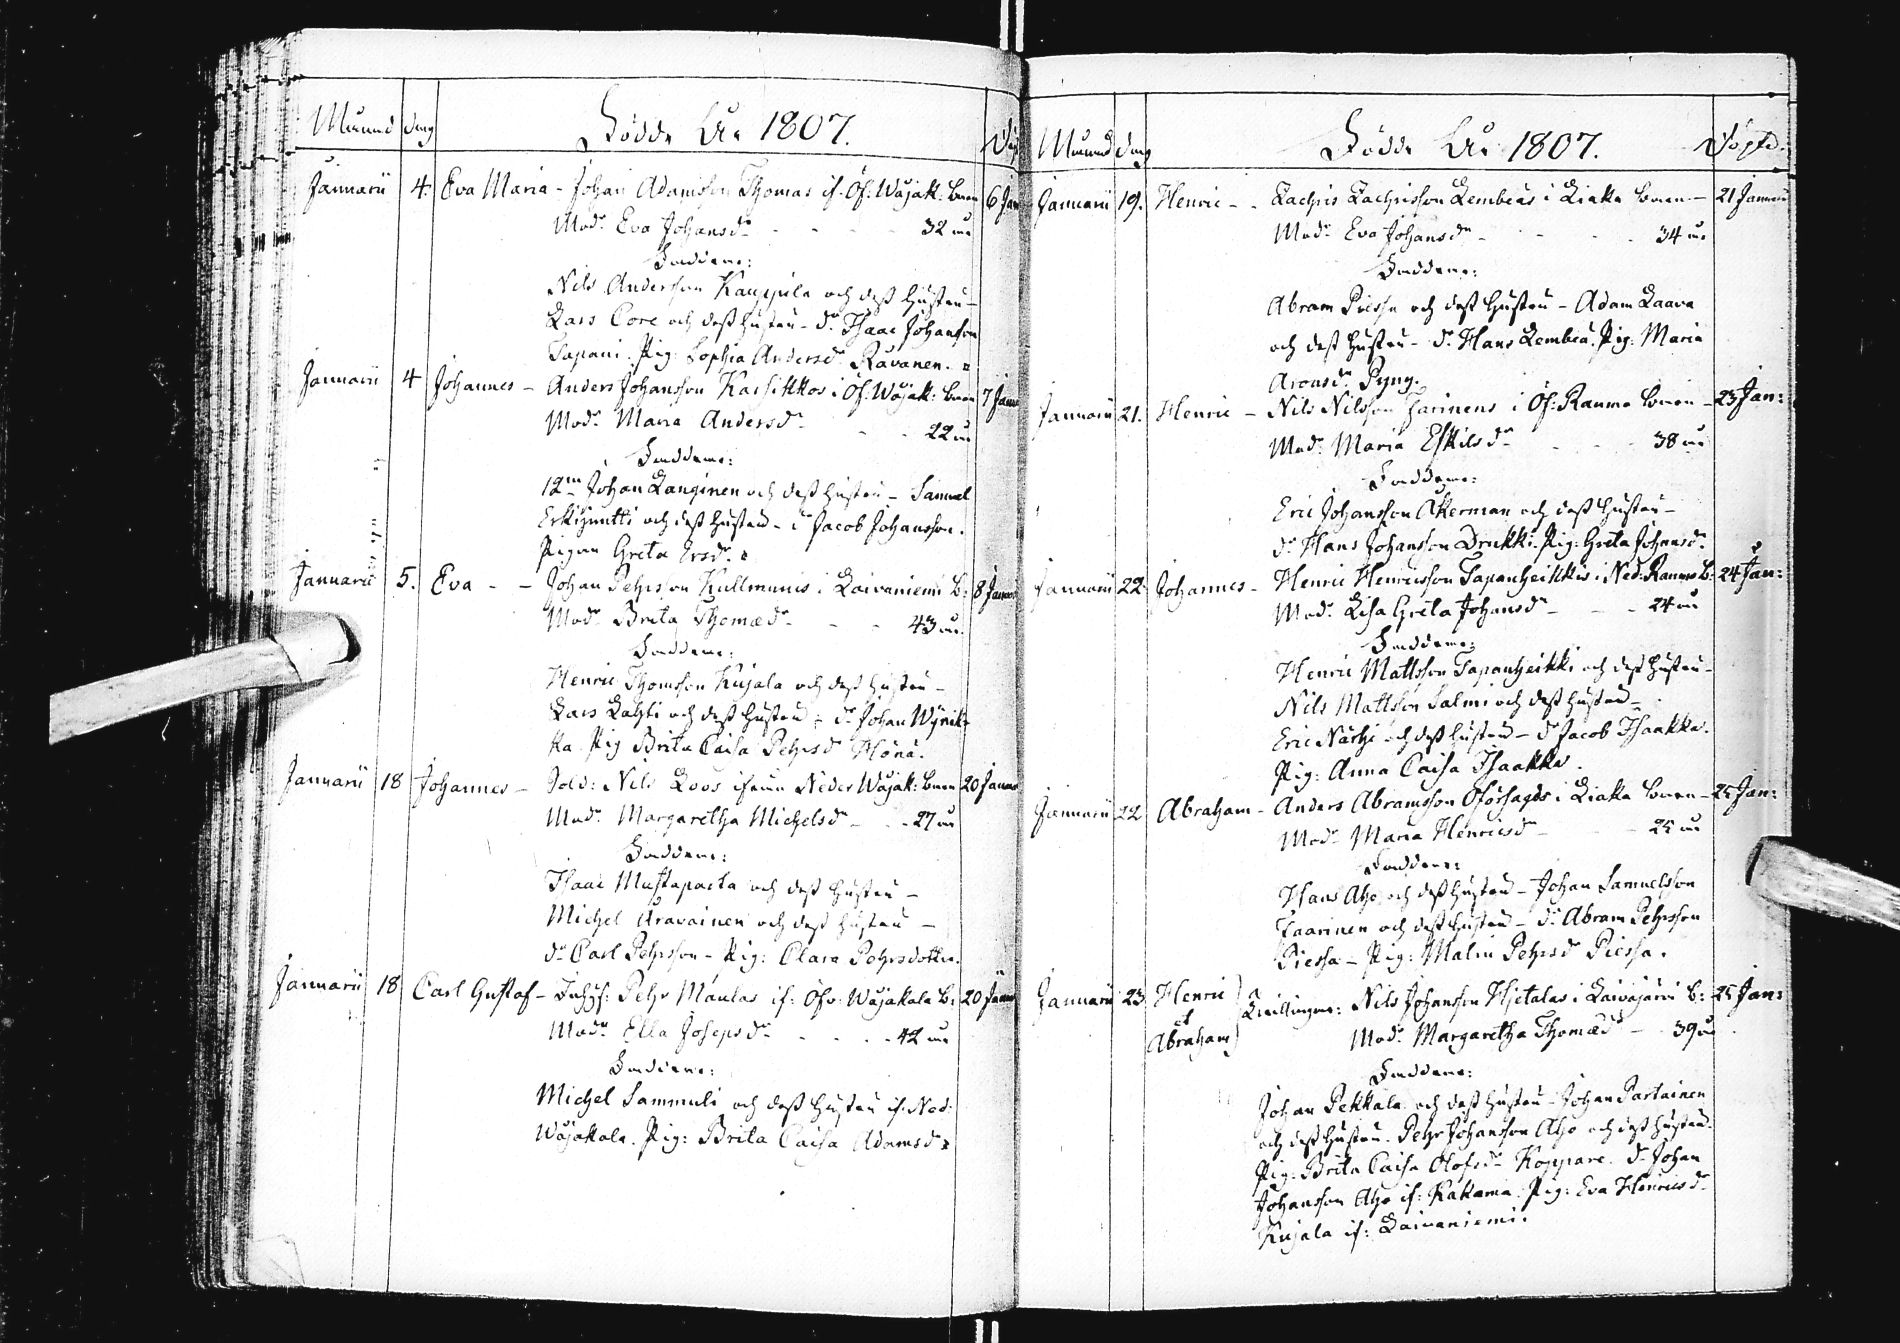 Månad dag Födde År 1807. Döpt
Januarii 4. Eva Maria - Johan Adamsson Thomas if. Öf: Wojak: boen 6 Jan
Mod: Eva Johansdr - - - - 32 år
Faddrar:
Nils Andersson Kauppila och dess hustru -
Lars Core och dess hustru - dr. Isaac Johansson
Tapani. Pig: Sophia Andersdr Ravanen.
Januarii 4 Johannes - Anders Johansson Karsikkos i Öf: Wojak: boen 7 Janu
Mod: Maria Andersdr - - 22 år
Faddrar:
12m. Johan Langinen och dess hustru - Samuel
Erkihuntti och dess hustru - dr Jacob Johansson.
Pigan Greta Ersdr.
Januarii 5. Eva - - Johan Pehrsson Kullmunis i Laivaniemi B: 8 Januar
Mod: Brita Thomædr - - 43 år.
Faddrar:
Henric Thomsson Kujala och dess hustru -
Lars Lahti och dess hustru - dr. Johan Wyrik-
ka. Pig Brita Caisa Pehrsdr Hönä.
Januarii 18 Johannes - Sold: Nils Koos ifrån Neder Wojak: boen 20 Januar
Mod: Margaretha Michelsdr - - 27 år
Faddrar:
Isaac Mustaparta och dess hustru -
Michel Aravainen och dess hustru -
dr. Carl Pehrsson - Pig: Clara Pehrsdotter.
Januarii 18 Carl Gustaf - Inhys: Pehr Maulas if: Öfv: Wojakala B: 20 Janu
Modr Ella Josepsdr - - - - 42 år
Faddrar:
Michel Sammuli och dess hustru if. Ned:
Wojakala. Pig: Brita Caisa Adamsdr
Månad dag Födde År 1807. Döpte.
Januarii 19. Henric - - Zachris Zachrisson Lembeas i Liakka boen - 21 Januarii
Modr Eva Johansdr - - - 34 år
Faddrar:
Abram Piessa och dess hustru - Adam Laava
och dess hustru - dr. Hans Lembea. Pig: Maria
Aronsdr. Pyny.
Januarii 21. Henric - Nils Nilsson Harinens i Öf: Raumo boen - 23 Jan:
Mod: Maria Eskilsdr - - - 38 år
Faddrar:
Eric Johansson Åkerman och dess hustru -
dr. Hans Johansson Drukki. Pig: Greta Johansdr.
Januarii 22. Johannes - Henric Henricsson Tapanheikkis i Ned: Raumo B: 24 Jan:
Mod: Lisa Greta Johansdr - - - 24 år
Faddrar:
Henric Mattsson Tapanheikki och dess hustru -
Nils Mattsson Salmi och dess hustru -
Eric Närhi och dess hustru - dr Jacob Isaakka.
Pig: Anna Caisa Isaakka.
Januarii 22 Abraham - Anders Abramsson Oförsagds i Liakka boen - 25 Jan:
Modr Maria Henricsdr - - 25 år
Faddrar:
Hans Aho och dess hustru - Johan Samuelsson
Zaarinen och dess hustru - dr. Abram Pehrsson
Piessa - Pig: Malin Pehrsdr Piessa.
Januarii 23. Henric et Abraham Twillingar: Nils Johansson Hjetalas i Laivajärvi B: 25 Jan:
Mod: Margaretha Thomædr - 39 år
Faddrar:
Johan Pekkala och dess hustru - Johan Partainen
och dess hustru. Pehr Johansson Aho och dess hustru.
Pig: Brita Caisa Olofsdr Koppare. dr. Johan
Johansson Aho if: Kakama. Pig: Eva Henricsdr
Kujala if: Laivaniemi.